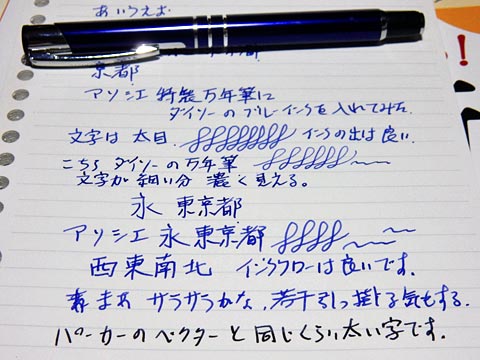 あいうえお
京都
アソシエ 特製万年筆に
ダイソーのブルーインクを入れてみた
文字は 太目 インクの出は良い
こちら ダイソーの万年筆
文字が細い分 濃く見える。
永 東京都
アソシエ 永 東京都
西東南北 インクフローは良いです。
サラサラかな、若干引っ掛る気もする。
パーカーのベクターと同じくらい太い字です。